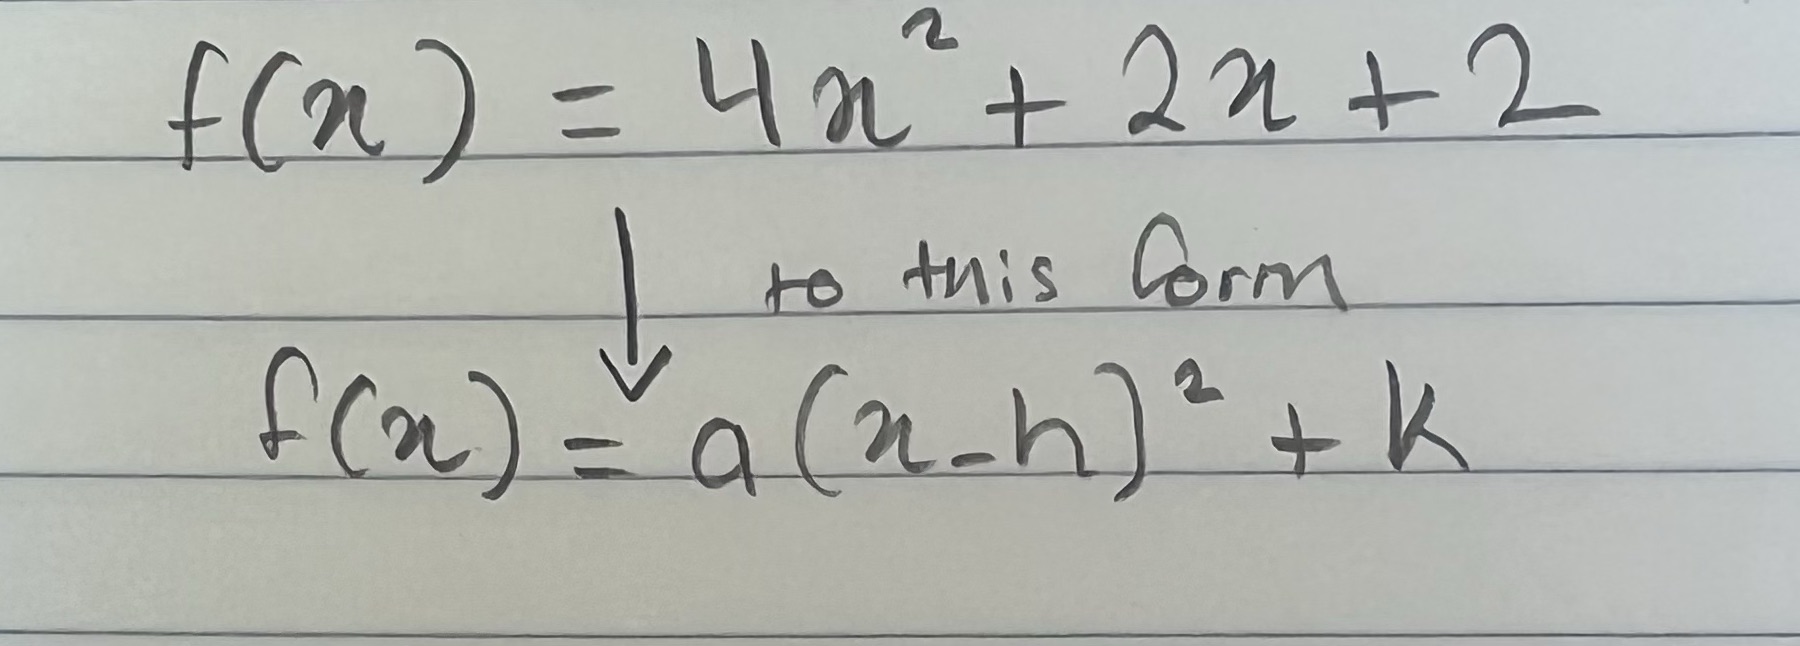 f(x) = 4x² + 2x + 2
↓ to this form
f(x) = a(x-h)² + k